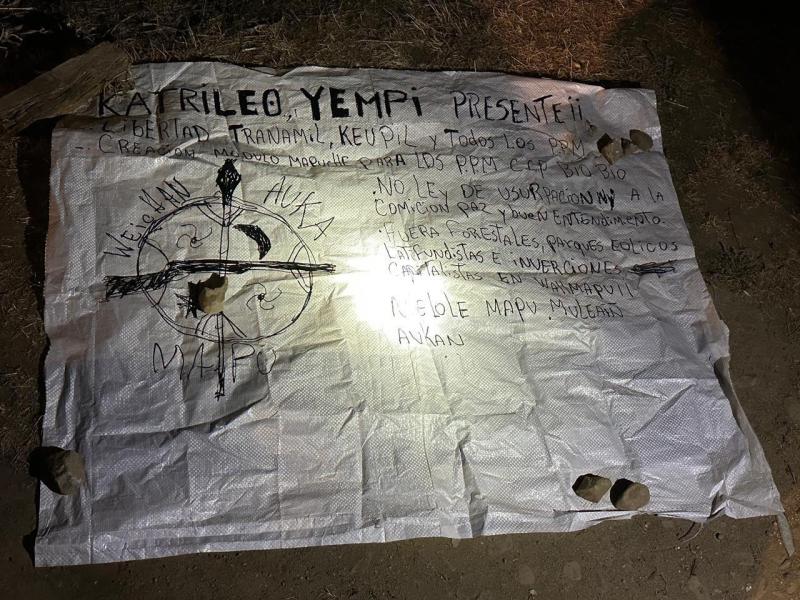 KATRILEO, YEMPI PRESENTE¡¡
. LIBERTAD TRANAMIL, KEUPIL y TODOS LOS PPM
- CREACION MODULO MAPUCHE PARA LOS P.P.M C.C.P BIO BIO
WEICHAN AUKA
MAPU
. NO LEY DE USURPACION NI A LA
COMICION PAZ y BUEN ENTENDIMENTO.
. FUERA FORESTALES, PARQUES EOLICOS
LATFUNDISTAS E INVERCIONES
CAPITALISTAS EN WALMAPU
MAPU MULEAIÑ
AUKAN